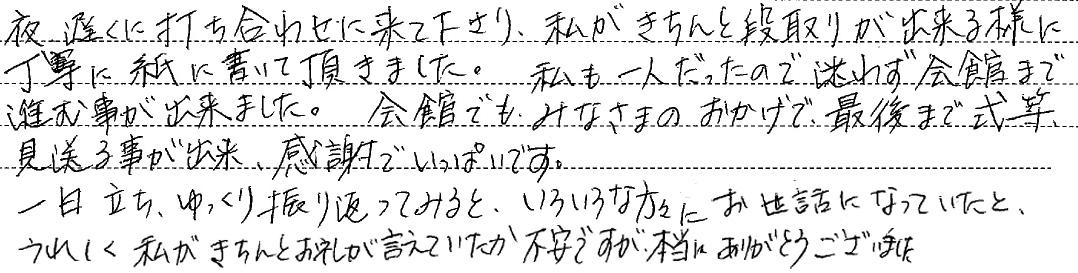 夜遅くに打ち合わせに来て下さり、私がきちんと段取りが出来る様に
丁寧に紙に書いて頂きました。 私も一人だったので迷わず会館まで
進む事が出来ました。 会館でも、みなさまのおかげで、最後まで式等、
見送る事が出来、感謝でいっぱいです。
一日立ち、ゆっくり振り返ってみると、いろいろな方々にお世話になっていたと、
うれしく私がきちんとお礼が言えていたか不安ですが、本当にありがとうございました